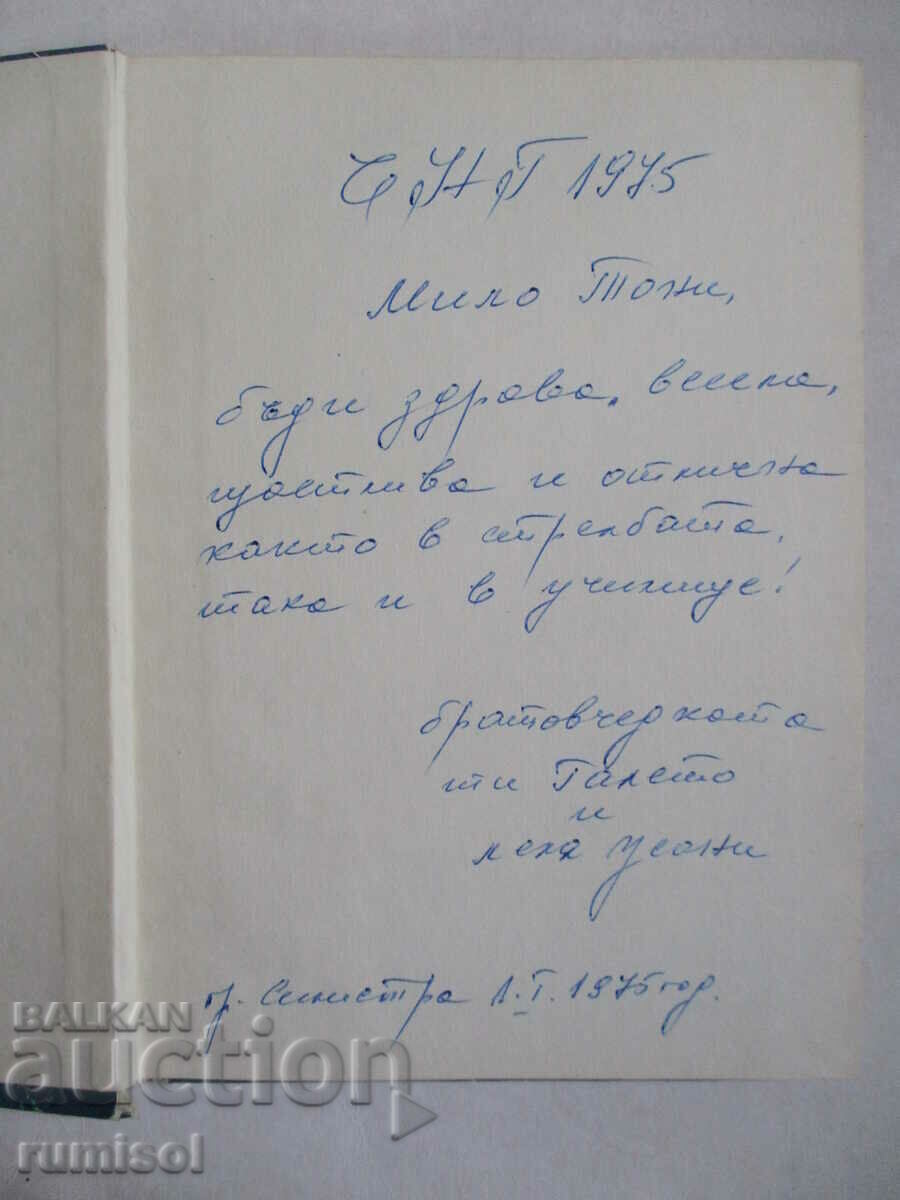 ЧНГ 1975
Мила Тони,
бъди здрава, весела,
щастлива и отлична
както в стрелбата,
така и в училище!
братовчедката
ти Галето
и
леля
гр. Силистра 1.I.1975 год.
BALKAN
auction
rumisol